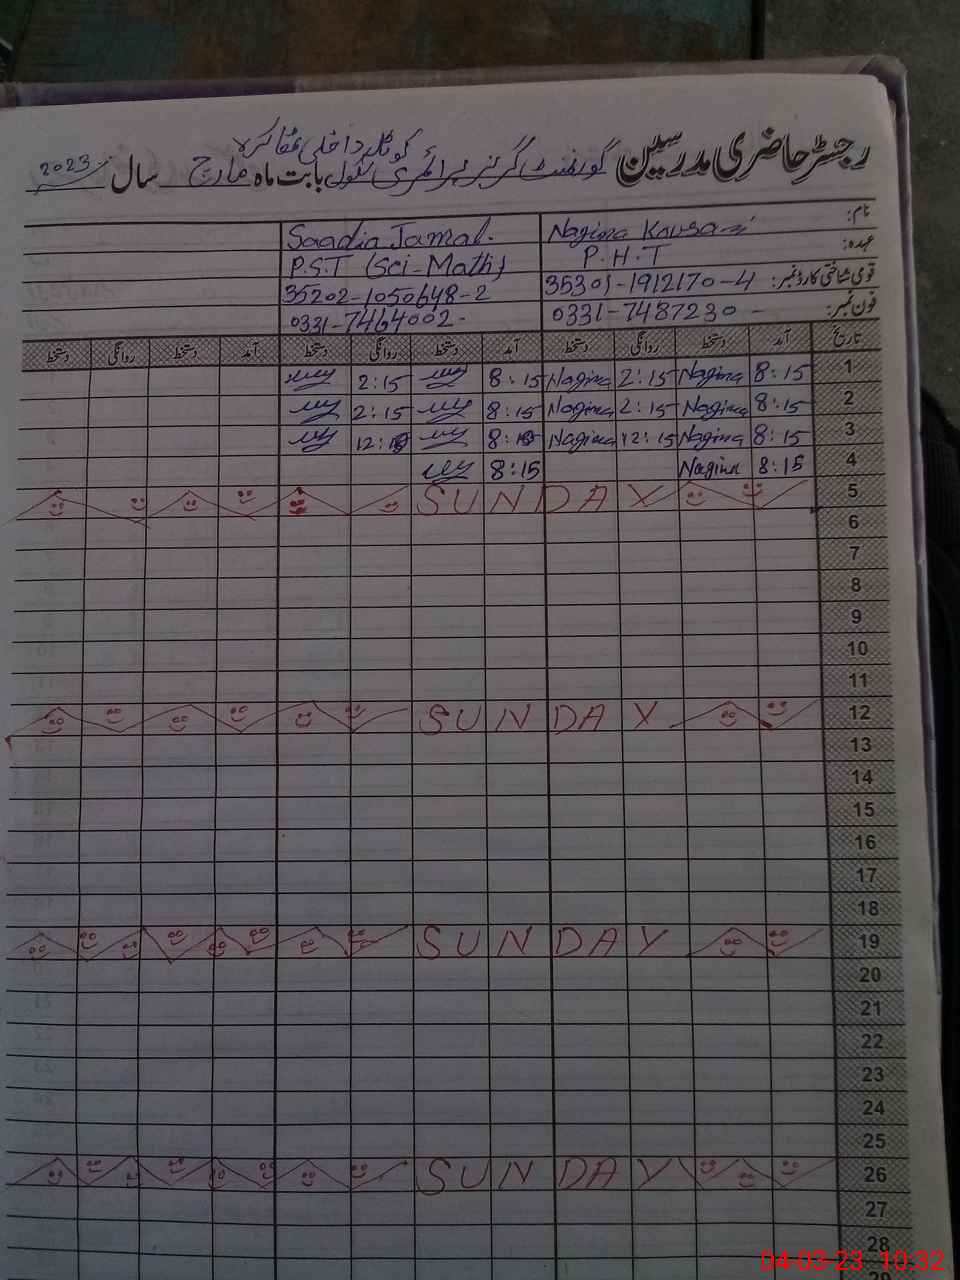 رجسٹر حاضری مدرسین گورنمنٹ گرلز پرائمری سکول کوٹلہ داخلی بابت ماہ مارچ سال 2023
نام: Nagina Kousar Saadia Jamal.
عہدہ: P.H.T P.S.T (Sci-Math)
قومی شناختی کارڈ نمبر: 35301-1912170-4 35202-1050648-2
فون نمبر: 0331-7487230 - 0331-7464002-
تاریخ آمد دستخط روانگی دستخط آمد دستخط روانگی دستخط آمد دستخط روانگی دستخط
1 8:15 Nagina 2:15 Nagina 8:15 2:15
2 8:15 Nagina 2:15 Nagina 8:15 2:15
3 8:15 Nagina 12:15 Nagina 8:15 12:15
4 8:15 Nagina 8:15
5 SUNDAY
6
7
8
9
10
11
12 SUNDAY
13
14
15
16
17
18
19 SUNDAY
20
21
22
23
24
25
26 SUNDAY
27
28
04-03-23 10:32